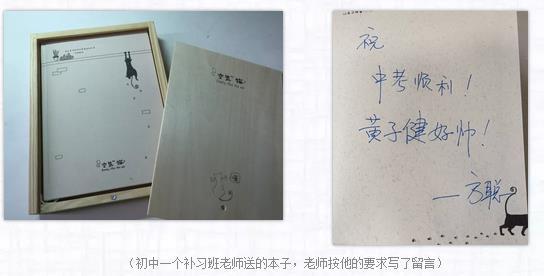 祝
中考顺利！
黄子健好帅！
——方聪
（初中一个补习班老师送的本子，老师按他的要求写了留言）